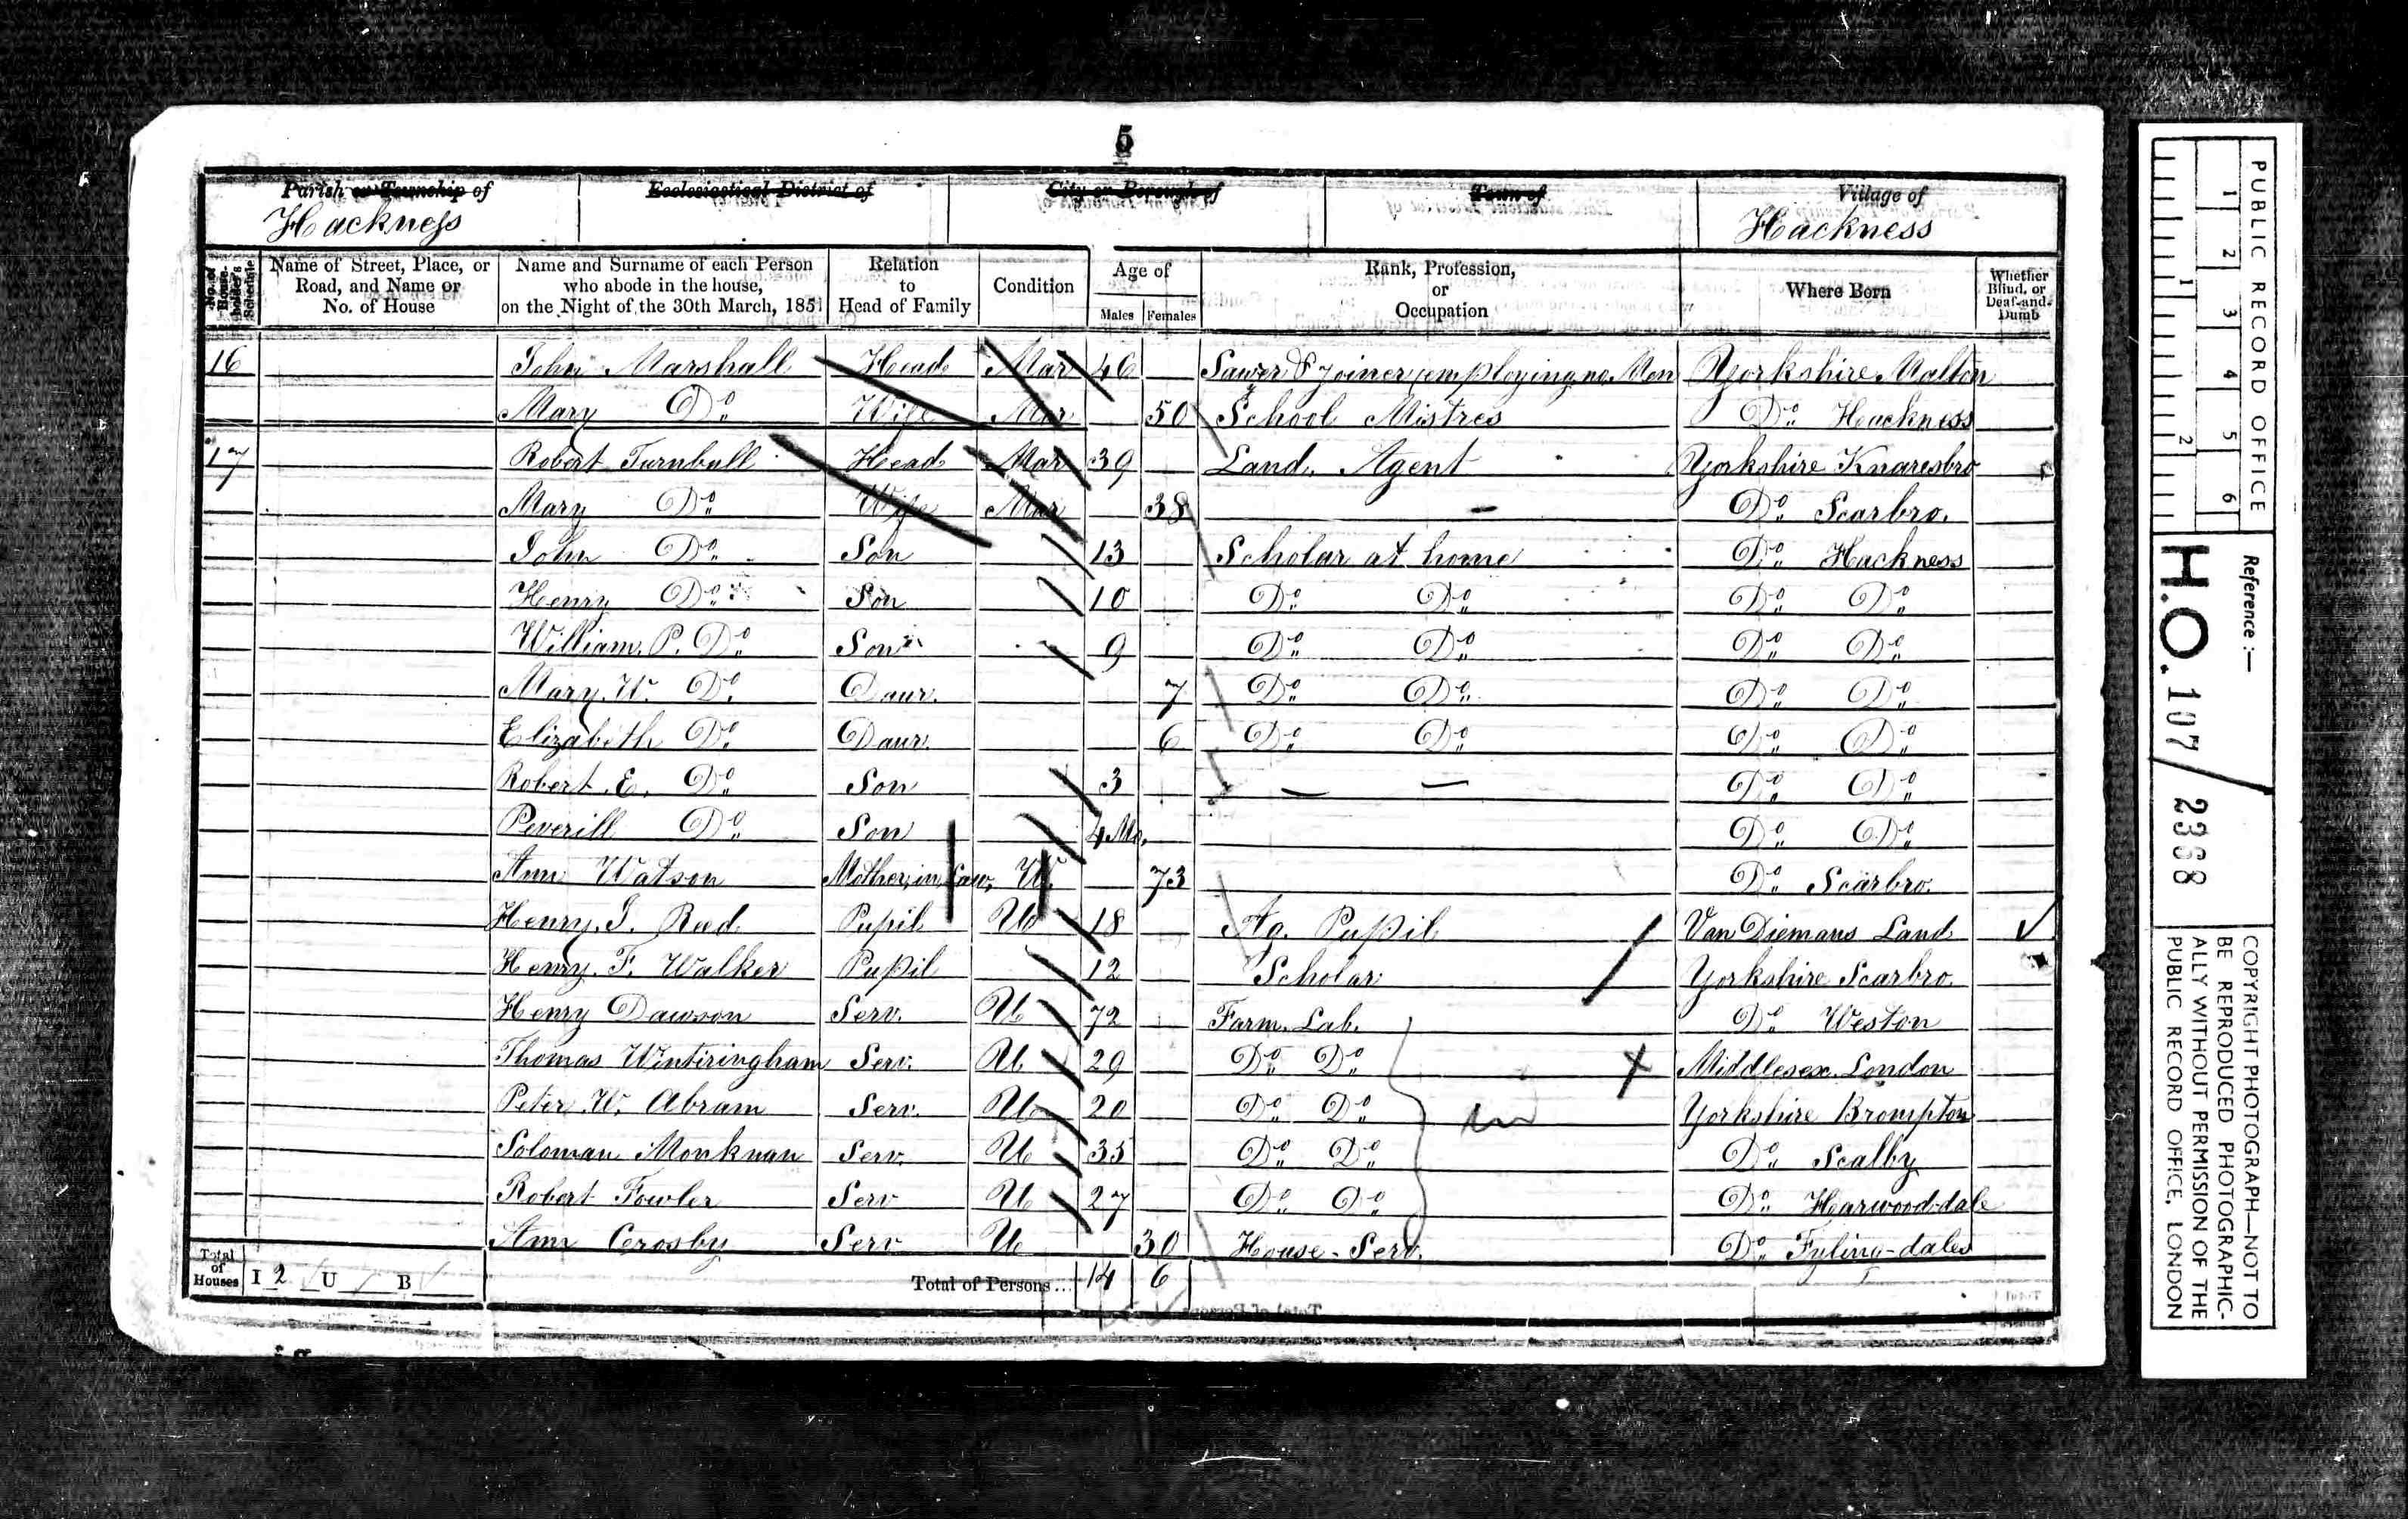 5
Parish or Township of Ecclesiastical District of City or Borough of Town of Village of
Hackness Hackness
No. of House-holder's Schedule Name of Street, Place, or Road, and Name or No. of House Name and Surname of each Person who abode in the house, on the Night of the 30th March, 1851 Relation to Head of Family Condition Age of Males Females Rank, Profession, or Occupation Where Born Whether Blind, or Deaf-and-Dumb
16 John Marshall Head Mar 46 Sawer & Joiner employing no Men Yorkshire Malton
Mary Do Wife Mar 50 School Mistres Do Hackness
17 Robert Turnbull Head Mar 39 Land Agent Yorkshire Knaresbro
Mary Do Wife Mar 38 - Do Scarbro.
John Do Son 13 Scholar at home Do Hackness
Henry Do Son 10 Do Do Do Do
William P. Do Son 9 Do Do Do Do
Mary W. Do Daur. 7 Do Do Do Do
Elizabeth Do Daur. 6 Do Do Do Do
Robert E. Do Son 3 — — Do Do
Peverill Do Son 4 Mo. Do Do
Ann Watson Mother in Law W. 73 Do Scarbro.
Henry J. Reed Pupil U 18 Ag. Pupil Van Diemans Land
Henry F. Walker Pupil 12 Scholar Yorkshire Scarbro.
Henry Dawson Serv. U 72 Farm. Lab. Do Weston
Thomas Wintiringham Serv. U 29 Do Do Middlesex London
Peter W. Abram Serv. U 20 Do Do Yorkshire Brompton
Soloman Monkman Serv. U 35 Do Do Do Scalby
Robert Fowler Serv U 27 Do Do Do Harwood-dale
Ann Crosby Serv U 30 House-Serv. Do Fyling-dales
Total of Houses I 2 U B Total of Persons... 14 6
PUBLIC RECORD OFFICE
1 2 3 4 5 6
1 2
Reference :—
H.O. 107/2368
COPYRIGHT PHOTOGRAPH—NOT TO
BE REPRODUCED PHOTOGRAPHIC-
ALLY WITHOUT PERMISSION OF THE
PUBLIC RECORD OFFICE, LONDON